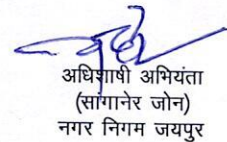 अधिशाषी अभियंता
(सांगानेर जोन)
नगर निगम जयपुर